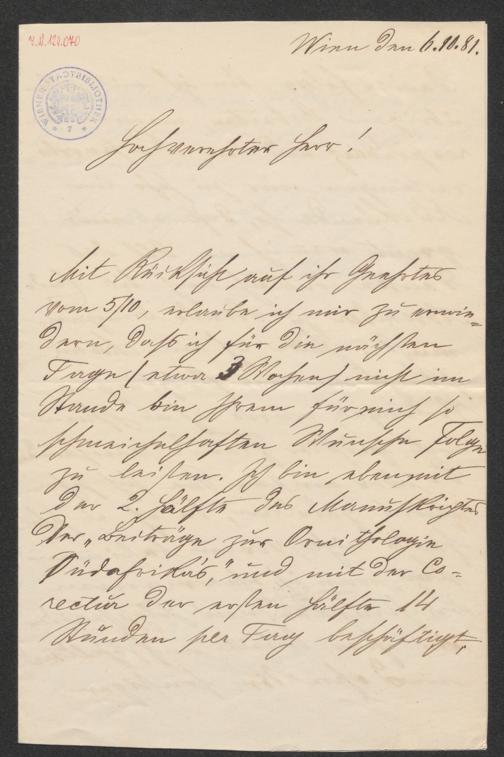 J.N. 120.070
WIENER STADTBIBLIOTHEK
Wien den 6.10.81.
Hochverehrter Herr!
Mit Rücksicht auf ihr Geehrtes
vom 5/10, erlaube ich mir zu erwie=
dern, dass ich für die nächsten
Tage (etwa 3 Wochen) nicht im
Stande bin Ihrem für mich so
schmeichelhaften Wunsche Folge
zu leisten. Ich bin eben mit
der 2. Hälfte des Manuskriptes
der „Beiträge zur Ornithologie
Südafrikas," und mit der Co=
rectur der ersten Hälfte 14
Stunden per Tag beschäftigt,